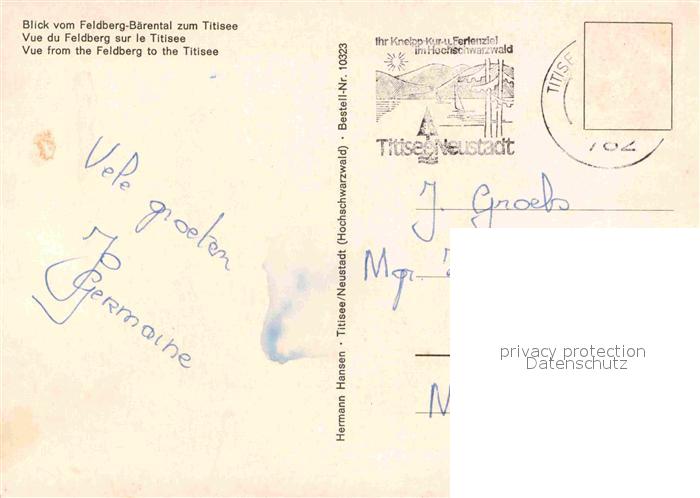 Blick vom Feldberg-Bärental zum Titisee
Vue du Feldberg sur le Titisee
Vue from the Feldberg to the Titisee
Vele groeten
Germaine
Hermann Hansen · Titisee/Neustadt (Hochschwarzwald) · Bestell-Nr. 10323
Ihr Kneipp-Kur-u. Ferienziel
im Hochschwarzwald
Titisee-Neustadt
TITISE
782
J. Groebs
Mgr.
privacy protection
Datenschutz